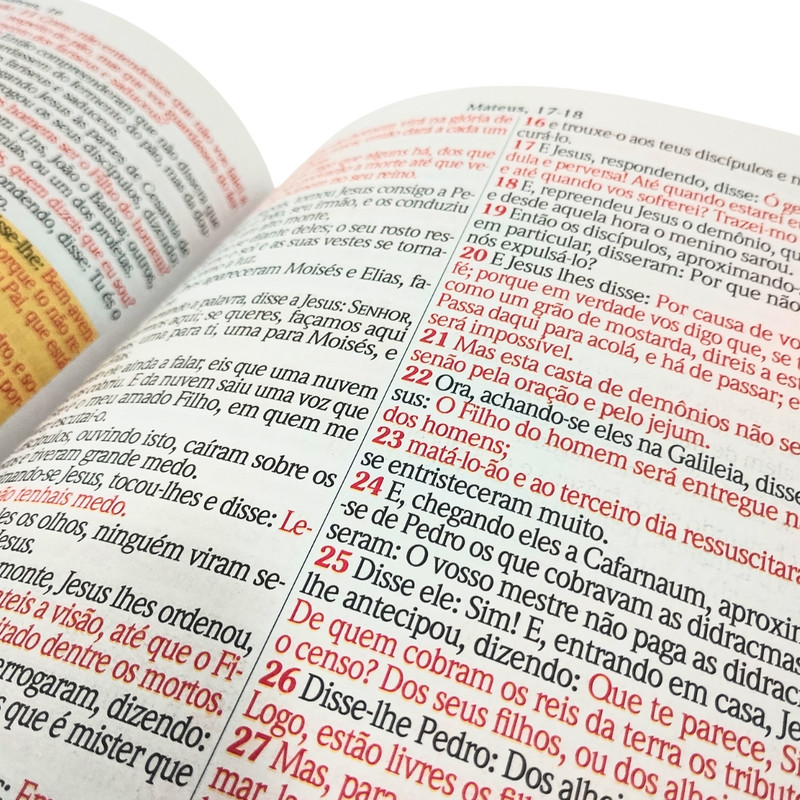 vos falei a
respeito do pão, mas que vos guardásseis do
dos fariseus e saduceus?
Então compreenderam que não dissera que
guardassem do fermento do pão, mas da dou
fariseus e saduceus.
chegando Jesus às partes de Cesareia de
rogou os seus discípulos, dizendo:
homens ser o Filho do homem?
Uns, João o Batista; outros,
mias, ou um dos profetas.
quem dizeis que eu sou?
pondendo, disse: Tu és o
sse-lhe: Bem-aven
porque to não re
Pai, que está
Mateus, 17-18
homem virá na glória de
dará a cada um
que alguns há, dos que
a morte até que ve-
no seu reino.
tomou Jesus consigo a Pe-
seu irmão, e os conduziu
monte,
diante deles; o seu rosto res-
sol e as suas vestes se torna-
luz.
apareceram Moisés e Elias, fa-
a palavra, disse a Jesus: SENHOR,
aqui; se queres, façamos aqui
uma para ti, uma para Moisés, e
ele ainda a falar, eis que uma nuvem
cobriu. E da nuvem saiu uma voz que
o meu amado Filho, em quem me
escutai-o.
ípulos, ouvindo isto, caíram sobre os
e tiveram grande medo.
mando-se Jesus, tocou-lhes e disse: Le-
não tenhais medo.
les os olhos, ninguém viram se-
Jesus.
monte, Jesus lhes ordenou,
teis a visão, até que o Fi-
itado dentre os mortos.
errogaram, dizendo:
s que é mister que
16 e trouxe-o aos teus discípulos e n
curá-lo.
17 E Jesus, respondendo, disse: Ó ge
dula e perversa! Até quando estarei eu
e até quando vos sofrerei? Trazei-mo
18 E, repreendeu Jesus o demônio, qu
e desde aquela hora o menino sarou.
19 Então os discípulos, aproximando-
em particular, disseram: Por que não
nós expulsá-lo?
20 E Jesus lhes disse: Por causa de vo
fé; porque em verdade vos digo que, se t
como um grão de mostarda, direis a est
Passa daqui para acolá, e há de passar; e
será impossível.
21 Mas esta casta de demônios não se
senão pela oração e pelo jejum.
22 Ora, achando-se eles na Galileia, disse
sus: O Filho do homem será entregue n
dos homens;
23 matá-lo-ão e ao terceiro dia ressuscitará
se entristeceram muito.
24 E, chegando eles a Cafarnaum, aproxim
-se de Pedro os que cobravam as didracmas
seram: O vosso mestre não paga as didrac
25 Disse ele: Sim! E, entrando em casa, Je
lhe antecipou, dizendo: Que te parece, Si
De quem cobram os reis da terra os tributo
o censo? Dos seus filhos, ou dos alhei
26 Disse-lhe Pedro: Dos alhei
Logo, estão livres os fil
27 Mas, para
mar, la